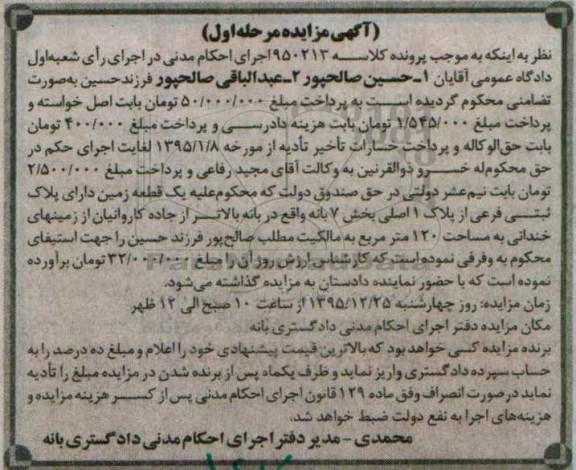 (آگهی مزایده مرحله اول)
نظر به اینکه به موجب پرونده کلاسه ۹۵۰۲۱۳ اجرای احکام مدنی در اجرای رأی شعبه اول
دادگاه عمومی آقایان ۱ـ حسین صالحپور ۲ـ عبدالباقی صالحپور فرزند حسین به صورت
تضامنی محکوم گردیده است به پرداخت مبلغ ۵۰/۰۰۰/۰۰۰ تومان بابت اصل خواسته و
پرداخت مبلغ ۱/۵۴۵/۰۰۰ تومان بابت هزینه دادرسی و پرداخت مبلغ ۴۰۰/۰۰۰ تومان
بابت حق الوکاله و پرداخت خسارات تأخیر تأدیه از مورخه ۱۳۹۵/۱/۸ لغایت اجرای حکم در
حق محکوم له خسرو ذوالقرنین به وکالت آقای مجید رفاعی و پرداخت مبلغ ۲/۵۰۰/۰۰۰
تومان بابت نیم عشر دولتی در حق صندوق دولت که محکوم علیه یک قطعه زمین دارای پلاک
ثبتی فرعی از پلاک ۱ اصلی بخش ۷ بانه واقع در بانه بالاتر از جاده کاروانیان از زمینهای
خندانی به مساحت ۱۲۰ متر مربع به مالکیت مطلب صالح پور فرزند حسین را جهت استیفای
محکوم به وفرفی نموده است که کارشناس ارزش روز آن را مبلغ ۳۲/۰۰۰/۰۰۰ تومان برآورده
نموده است که با حضور نماینده دادستان به مزایده گذاشته می شود.
زمان مزایده: روز چهارشنبه ۱۳۹۵/۱۲/۲۵ از ساعت ۱۰ صبح الی ۱۲ ظهر
مکان مزایده دفتر اجرای احکام مدنی دادگستری بانه
برنده مزایده کسی خواهد بود که بالاترین قیمت پیشنهادی خود را اعلام و مبلغ ده درصد را به
حساب سپرده دادگستری واریز نماید و ظرف یکماه پس از برنده شدن در مزایده مبلغ را تأدیه
نماید در صورت انصراف وفق ماده ۱۲۹ قانون اجرای احکام مدنی پس از کسر هزینه مزایده و
هزینه های اجرا به نفع دولت ضبط خواهد شد.
محمدی - مدیر دفتر اجرای احکام مدنی دادگستری بانه